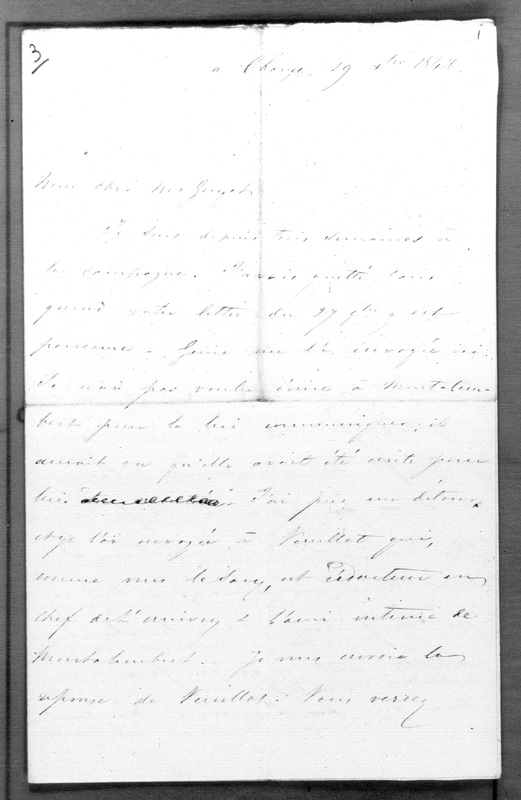 3/
1
a Change, 19 Xbre 1848.
Mon cher Mr Guyot
Je suis depuis trois semaines à
la campagne. J'avais quitté Paris
quand votre lettre du 27 9bre y est
parvenue. me l'a envoyée ici.
Je n'ai pas voulu écrire à Montalem-
bert pour la lui communiquer, il
aurait vu qu'elle avait été écrite pour
lui. J'ai pris un détour,
et je l'ai envoyée à Veuillot qui,
comme vous le savez, est rédacteur en
chef de L'univers & l'ami intime de
Montalembert. Je vous envoie la
réponse de Veuillot. Vous verrez